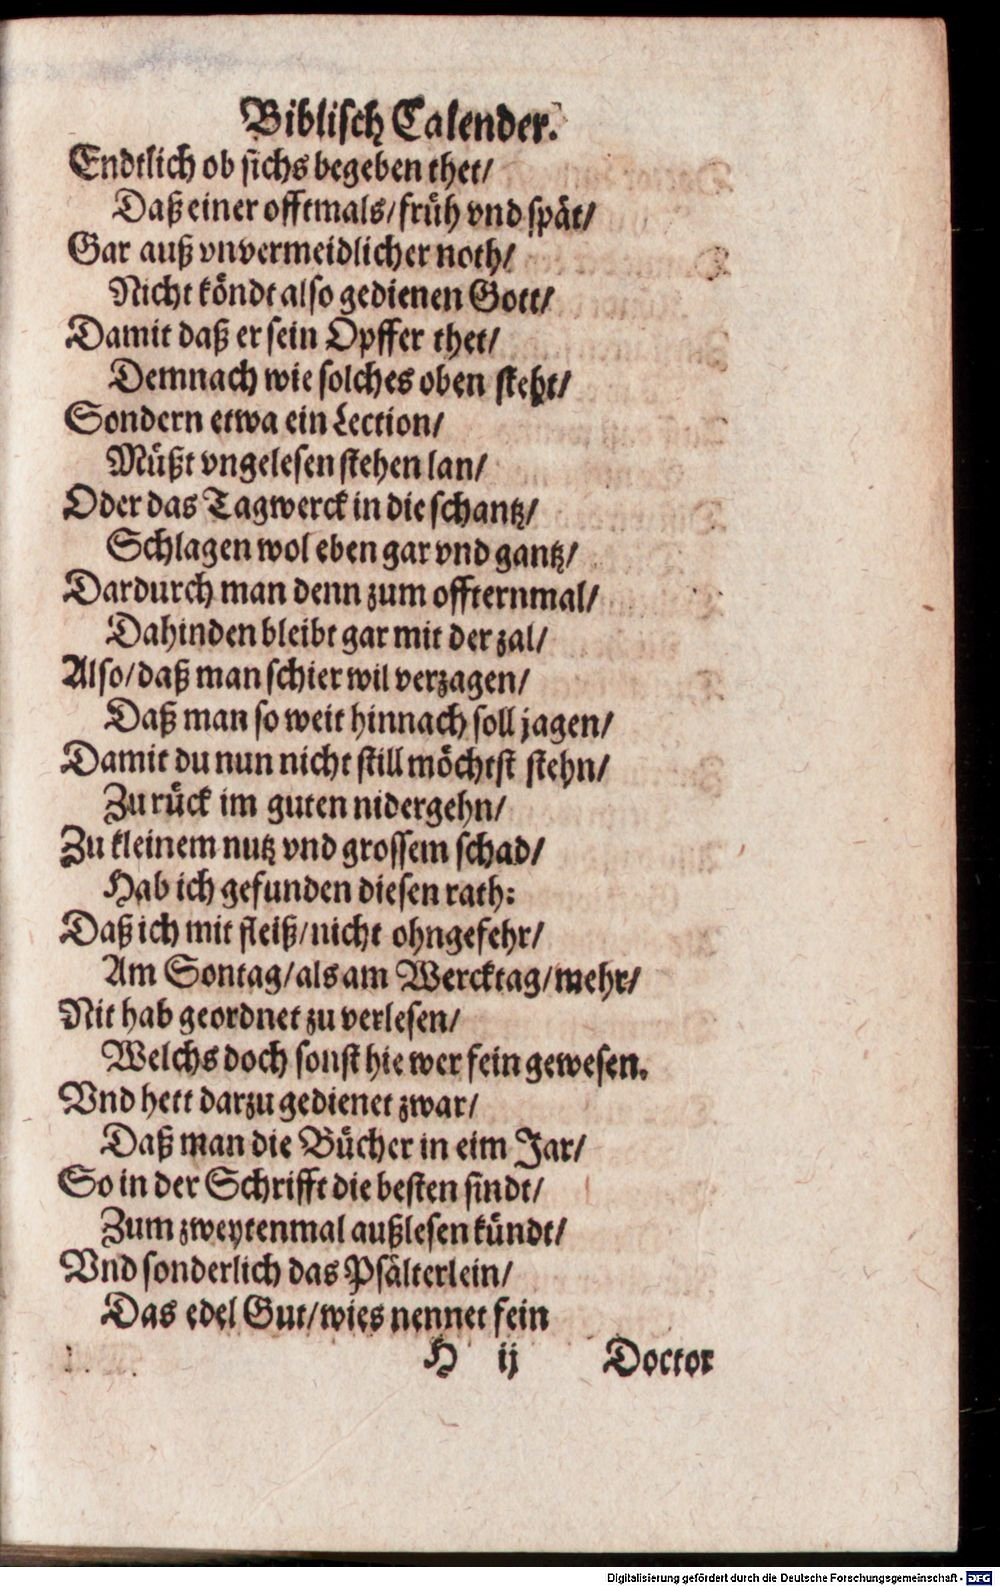 Biblisch Calender.
Endtlich ob sichs begeben thet/
Daß einer offtmals/früh vnd spät/
Gar auß vnvermeidlicher noth/
Nicht köndt also gedienen Gott/
Damit daß er sein Opffer thet/
Demnach wie solches oben steht/
Sondern etwa ein Lection/
Müßt vngelesen stehen lan/
Oder das Tagwerck in die schantz/
Schlagen wol eben gar vnd gantz/
Dardurch man denn zum offternmal/
Dahinden bleibt gar mit der zal/
Also/daß man schier wil verzagen/
Daß man so weit hinnach soll jagen/
Damit du nun nicht still möchtst stehn/
Zu rück im guten nidergehn/
Zu kleinem nutz vnd grossem schad/
Hab ich gefunden diesen rath:
Daß ich mit fleiß/nicht ohngefehr/
Am Sontag/als am Wercktag/mehr/
Nit hab geordnet zu verlesen/
Welchs doch sonst hie wer fein gewesen.
Vnd hett darzu gedienet zwar/
Daß man die Bücher in eim Jar/
So in der Schrifft die besten sindt/
Zum zweytenmal außlesen kündt/
Vnd sonderlich das Psälterlein/
Das edel Gut/wies nennet fein
H ij Doctor
Digitalisierung gefördert durch die Deutsche Forschungsgemeinschaft - DFG